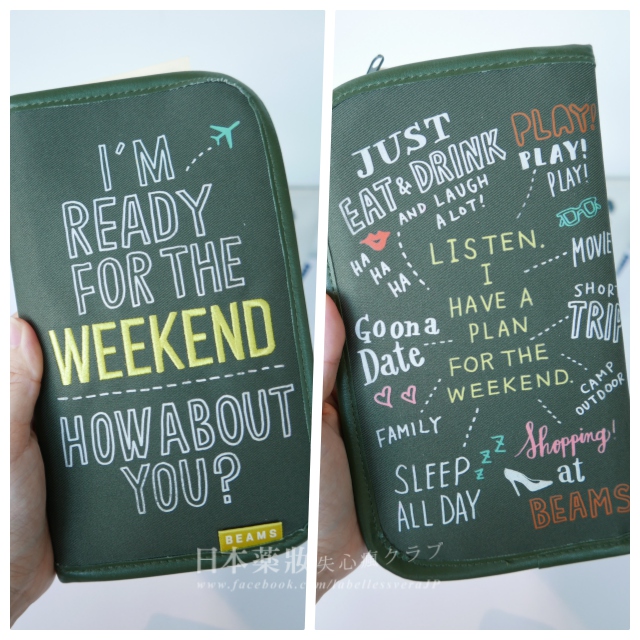 I'M
READY
FOR THE
WEEKEND
HOW ABOUT
YOU?
BEAMS
JUST
EAT & DRINK
AND LAUGH
A LOT!
HA
HA
HA
PLAY!
PLAY!
PLAY!
LISTEN.
I
HAVE A
PLAN
FOR THE
WEEKEND.
MOVIE
SHORT
TRIP
Go on a
Date
CAMP
OUTDOOR
FAMILY
SLEEP
ALL DAY
Z Z Z
Shopping!
at
BEAMS
日本藥妝失心瘋クラブ